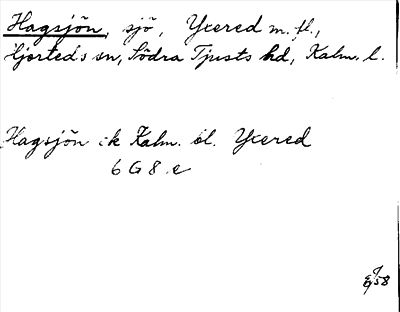 Hagsjön, sjö, Ycered m. fl.,
Hjorteds sn, Södra Tjusts hd, Kalm. l.
Hagsjön ek Kalm. öl. Ycered
6 G 8 e